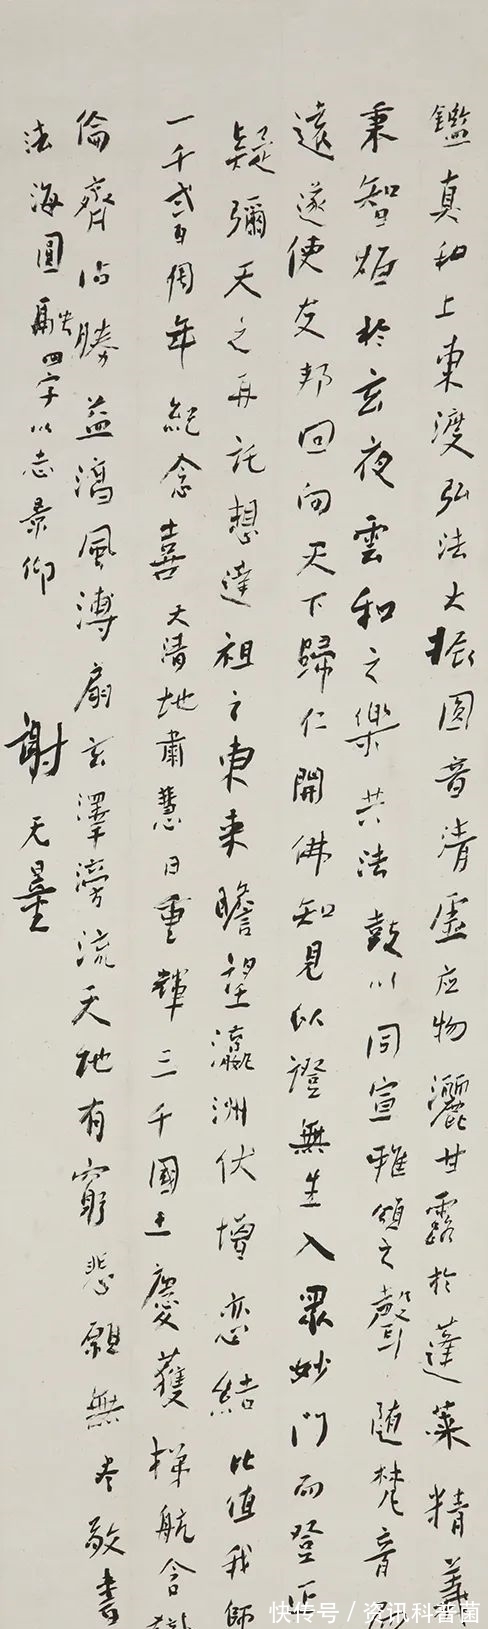 鑑真和上東渡弘法大振圓音清虛应物灑甘露於蓬萊精義
秉智炬於玄夜雲和之樂共法鼓以同宣雅頌之聲随梵音
遠遂使友邦回向天下歸仁開佛知見以證無生入眾妙門而登正
疑彌天之再託想達祖之東来瞻望瀛洲伏增恋結比值我師
一千弍百周年紀念喜天清地肅慧日重輝三千國土慶獲梯航含
倫齊沾勝益澫風溥扇玄澤滂流天地有窮悲願無尽敬書
法海圓融四字以志景仰
謝无量
快传号/资讯科普菌